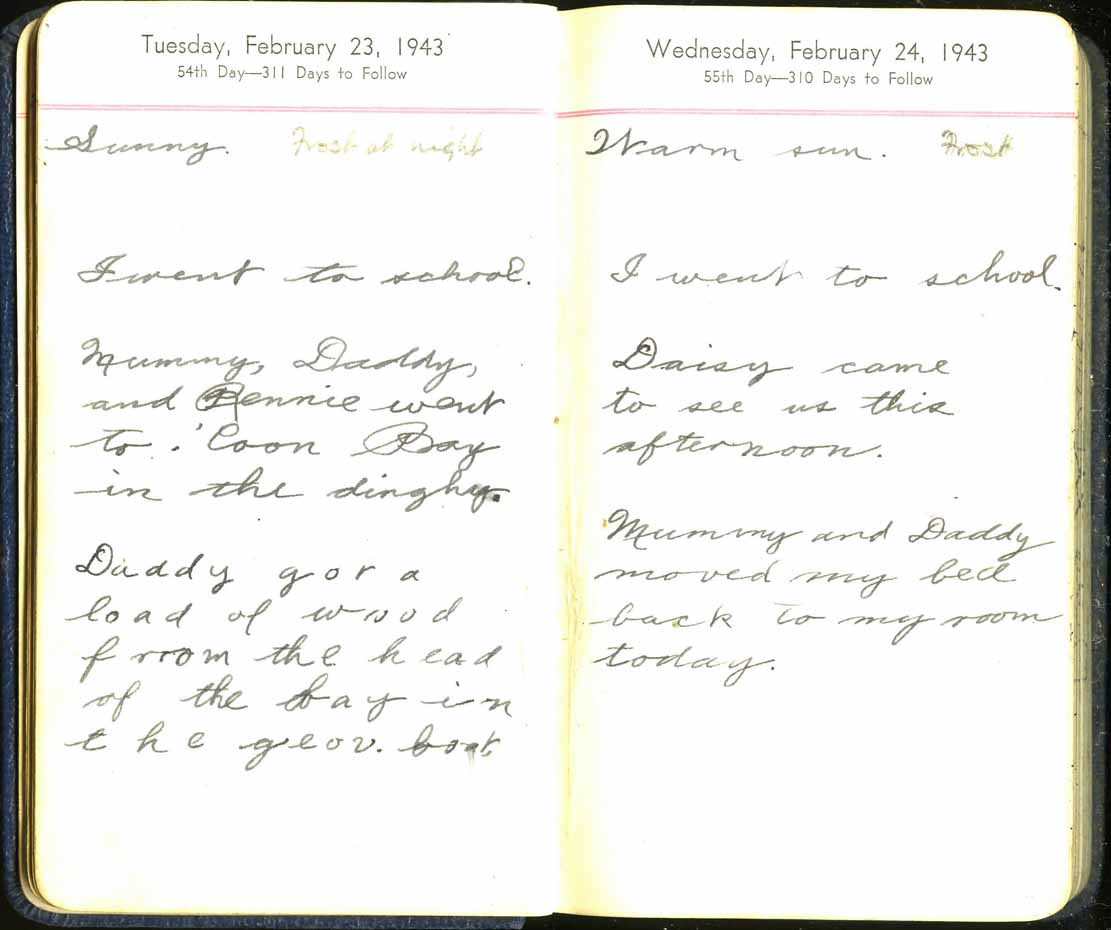 Tuesday, February 23, 1943
54th Day—311 Days to Follow
Sunny. Frost at night
I went to school.
Mummy, Daddy,
and Bennie went
to 'Coon Bay
in the dinghy.
Daddy got a
load of wood
from the head
of the bay in
the gov. boat
Wednesday, February 24, 1943
55th Day—310 Days to Follow
Warm sun. Frost
I went to school.
Daisy came
to see us this
afternoon.
Mummy and Daddy
moved my bed
back to my room
today.